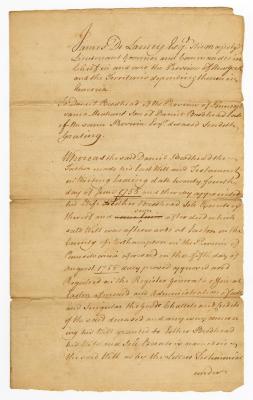 James De Lancey Esqr. His Majesty's
Lieutenant Governor and Commander in
Chief in and over the Province of New York
and the Territories depending thereon in
America
To Daniel Brodhead of the Province of Pennsyl
vania Merchant Son of Daniel Brodhead late
of the same Province Esqr. deceased Sendeth
Greeting
Whereas the said Daniel Brodhead the
Father made his Last Will and Testament
in Writing bearing date the
day of June 1755 and thereby appointed
his Wife Esther Brodhead Sole Executrix
thereof and soon after died which
said Will was afterwards at Easton in the
County of Northampton in the Province of
Pennsilvania aforesaid on the fifth day of
August 1755 duly proved approved and
Registred in the Register Generals office at
Easton aforesaid and Administration of all
and Singular the Goods Chattels and Credits
of the said deceased and any way concern
ing his Will granted to Esther Brodhead
his Wife and Sole Executrix named in
the said Will as by the Letters Testamentary
under